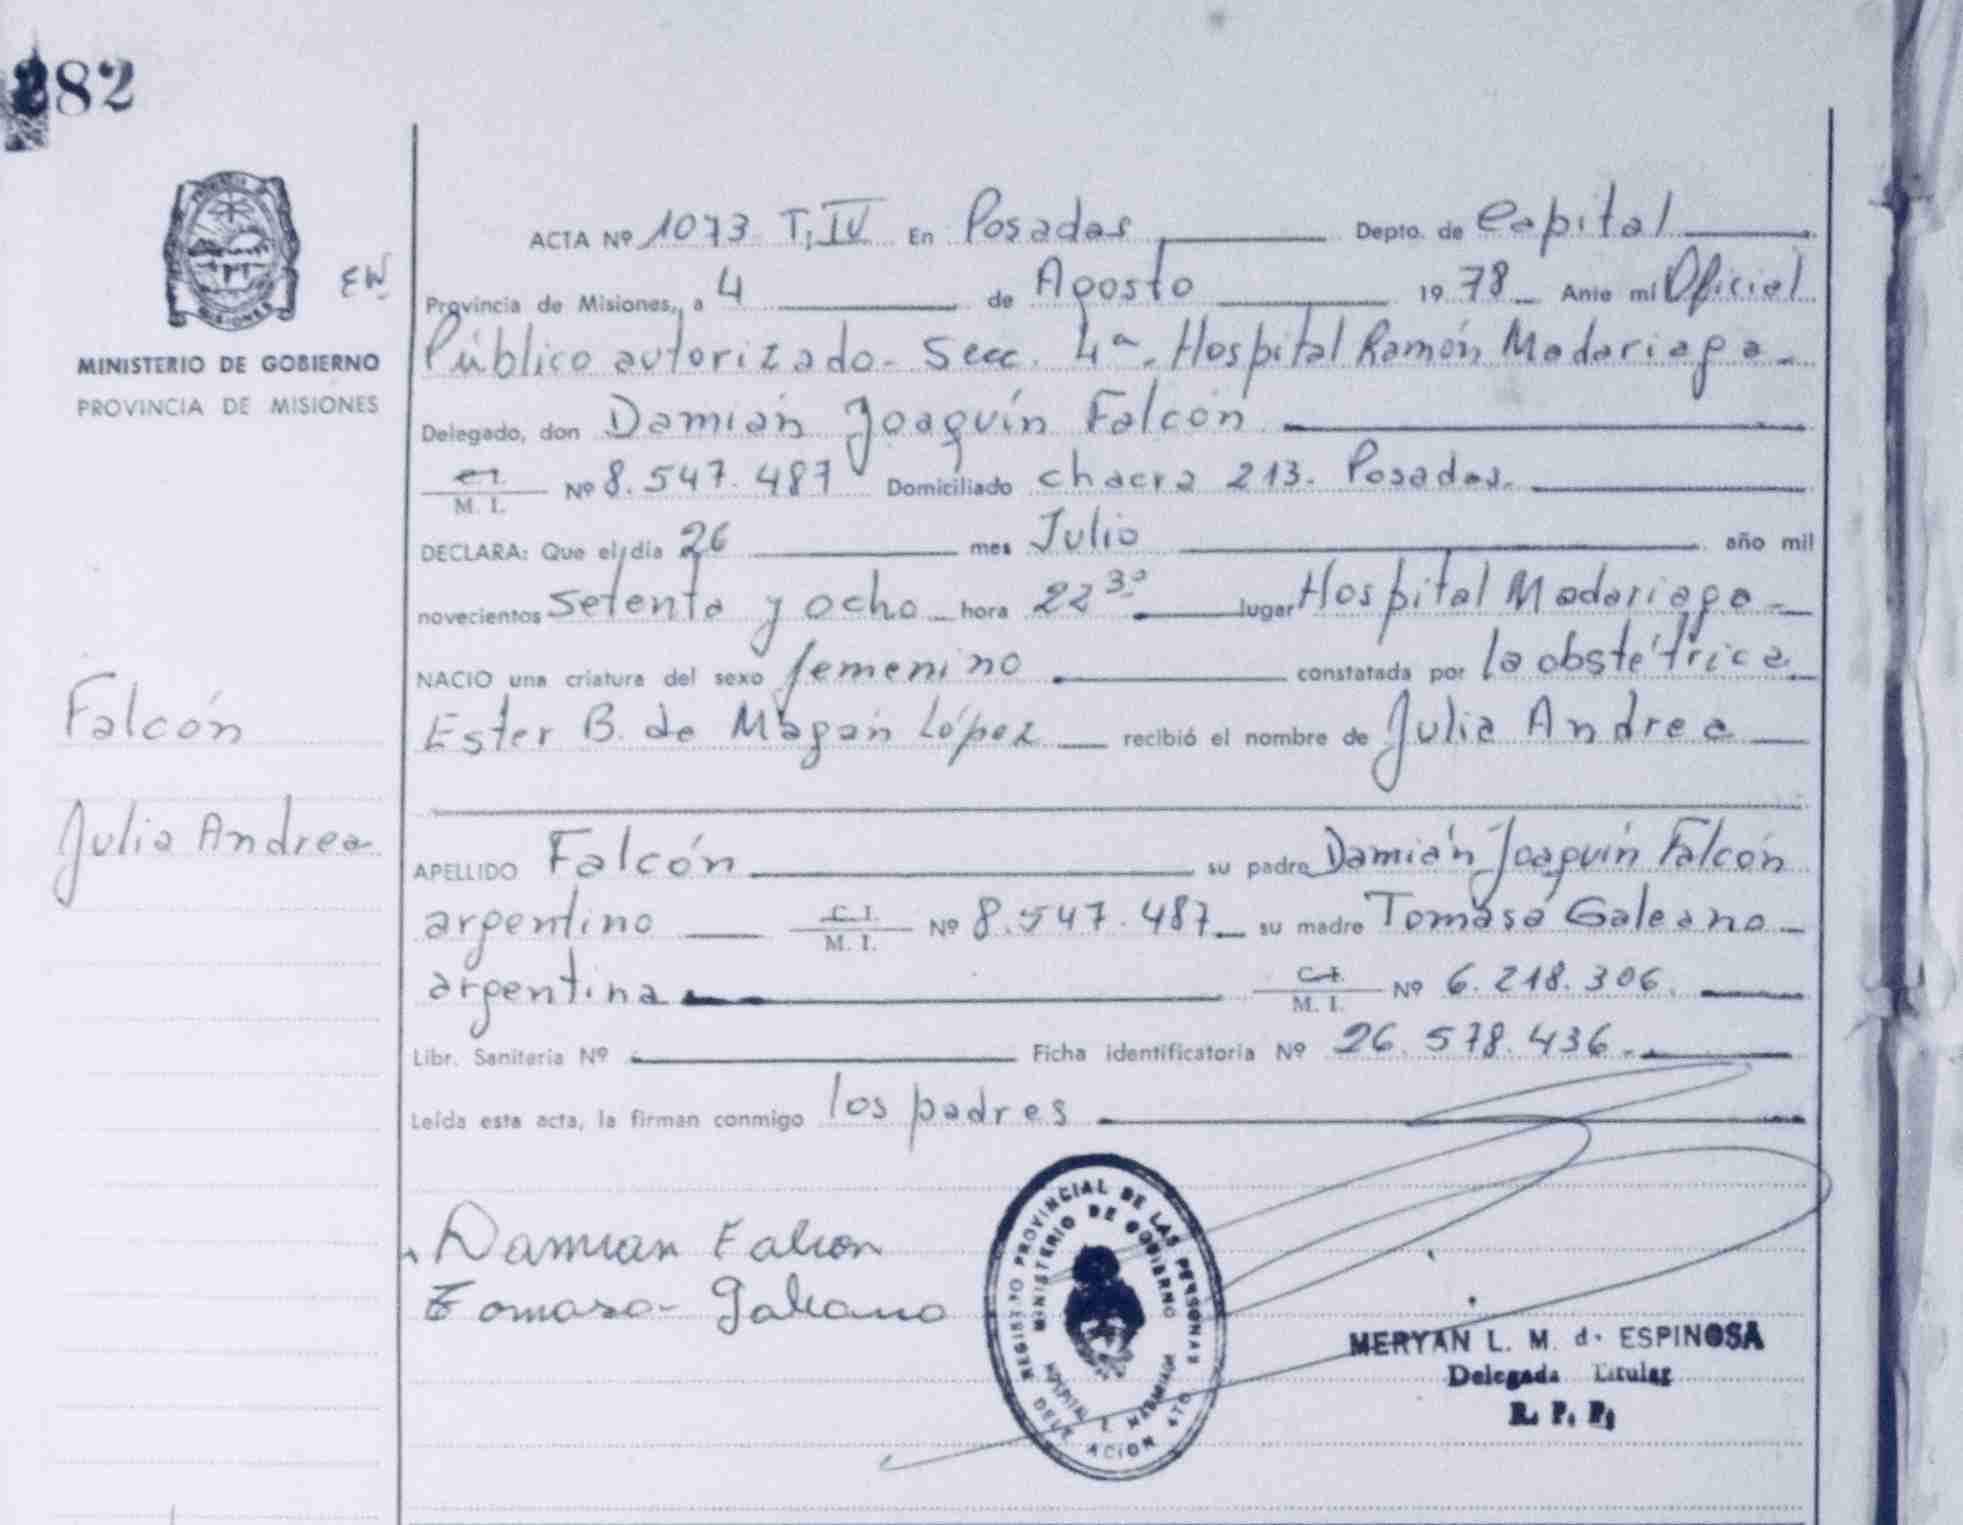 282
ACTA Nº 1073 T. IV En Posadas Depto. de Capital
EW
Provincia de Misiones, a 4 de Agosto 1978 Ante mí Oficial
Público autorizado - Secc. 4ª. Hospital Ramón Madariaga -
MINISTERIO DE GOBIERNO
PROVINCIA DE MISIONES
Delegado, don Damián Joaquín Falcón
C.I.
M. I. Nº 8.547.487 Domiciliado chacra 213. Posadas.
DECLARA: Que el día 26 mes Julio año mil
novecientos setenta y ocho hora 22 30 lugar Hospital Madariaga -
NACIO una criatura del sexo femenino constatada por la obstétrica
Ester B. de Magán López recibió el nombre de Julia Andrea
Falcón
Julia Andrea
APELLIDO Falcón su padre Damián Joaquín Falcón
argentino C. I. M. I. Nº 8.547.487 su madre Tomasa Galeano
argentina C. I. M. I. Nº 6.218.306.
Libr. Sanitaria Nº Ficha identificatoria Nº 26.578.436.
Leída esta acta, la firman conmigo los padres
Damian Falcon
Tomasa Galeano
REGISTRO PROVINCIAL DE LAS PERSONAS
MINISTERIO DE GOBIERNO
HOSPITAL R. MADARIAGA
MERYAN L. M. d. ESPINOSA
Delegada Titular
R. P. P.